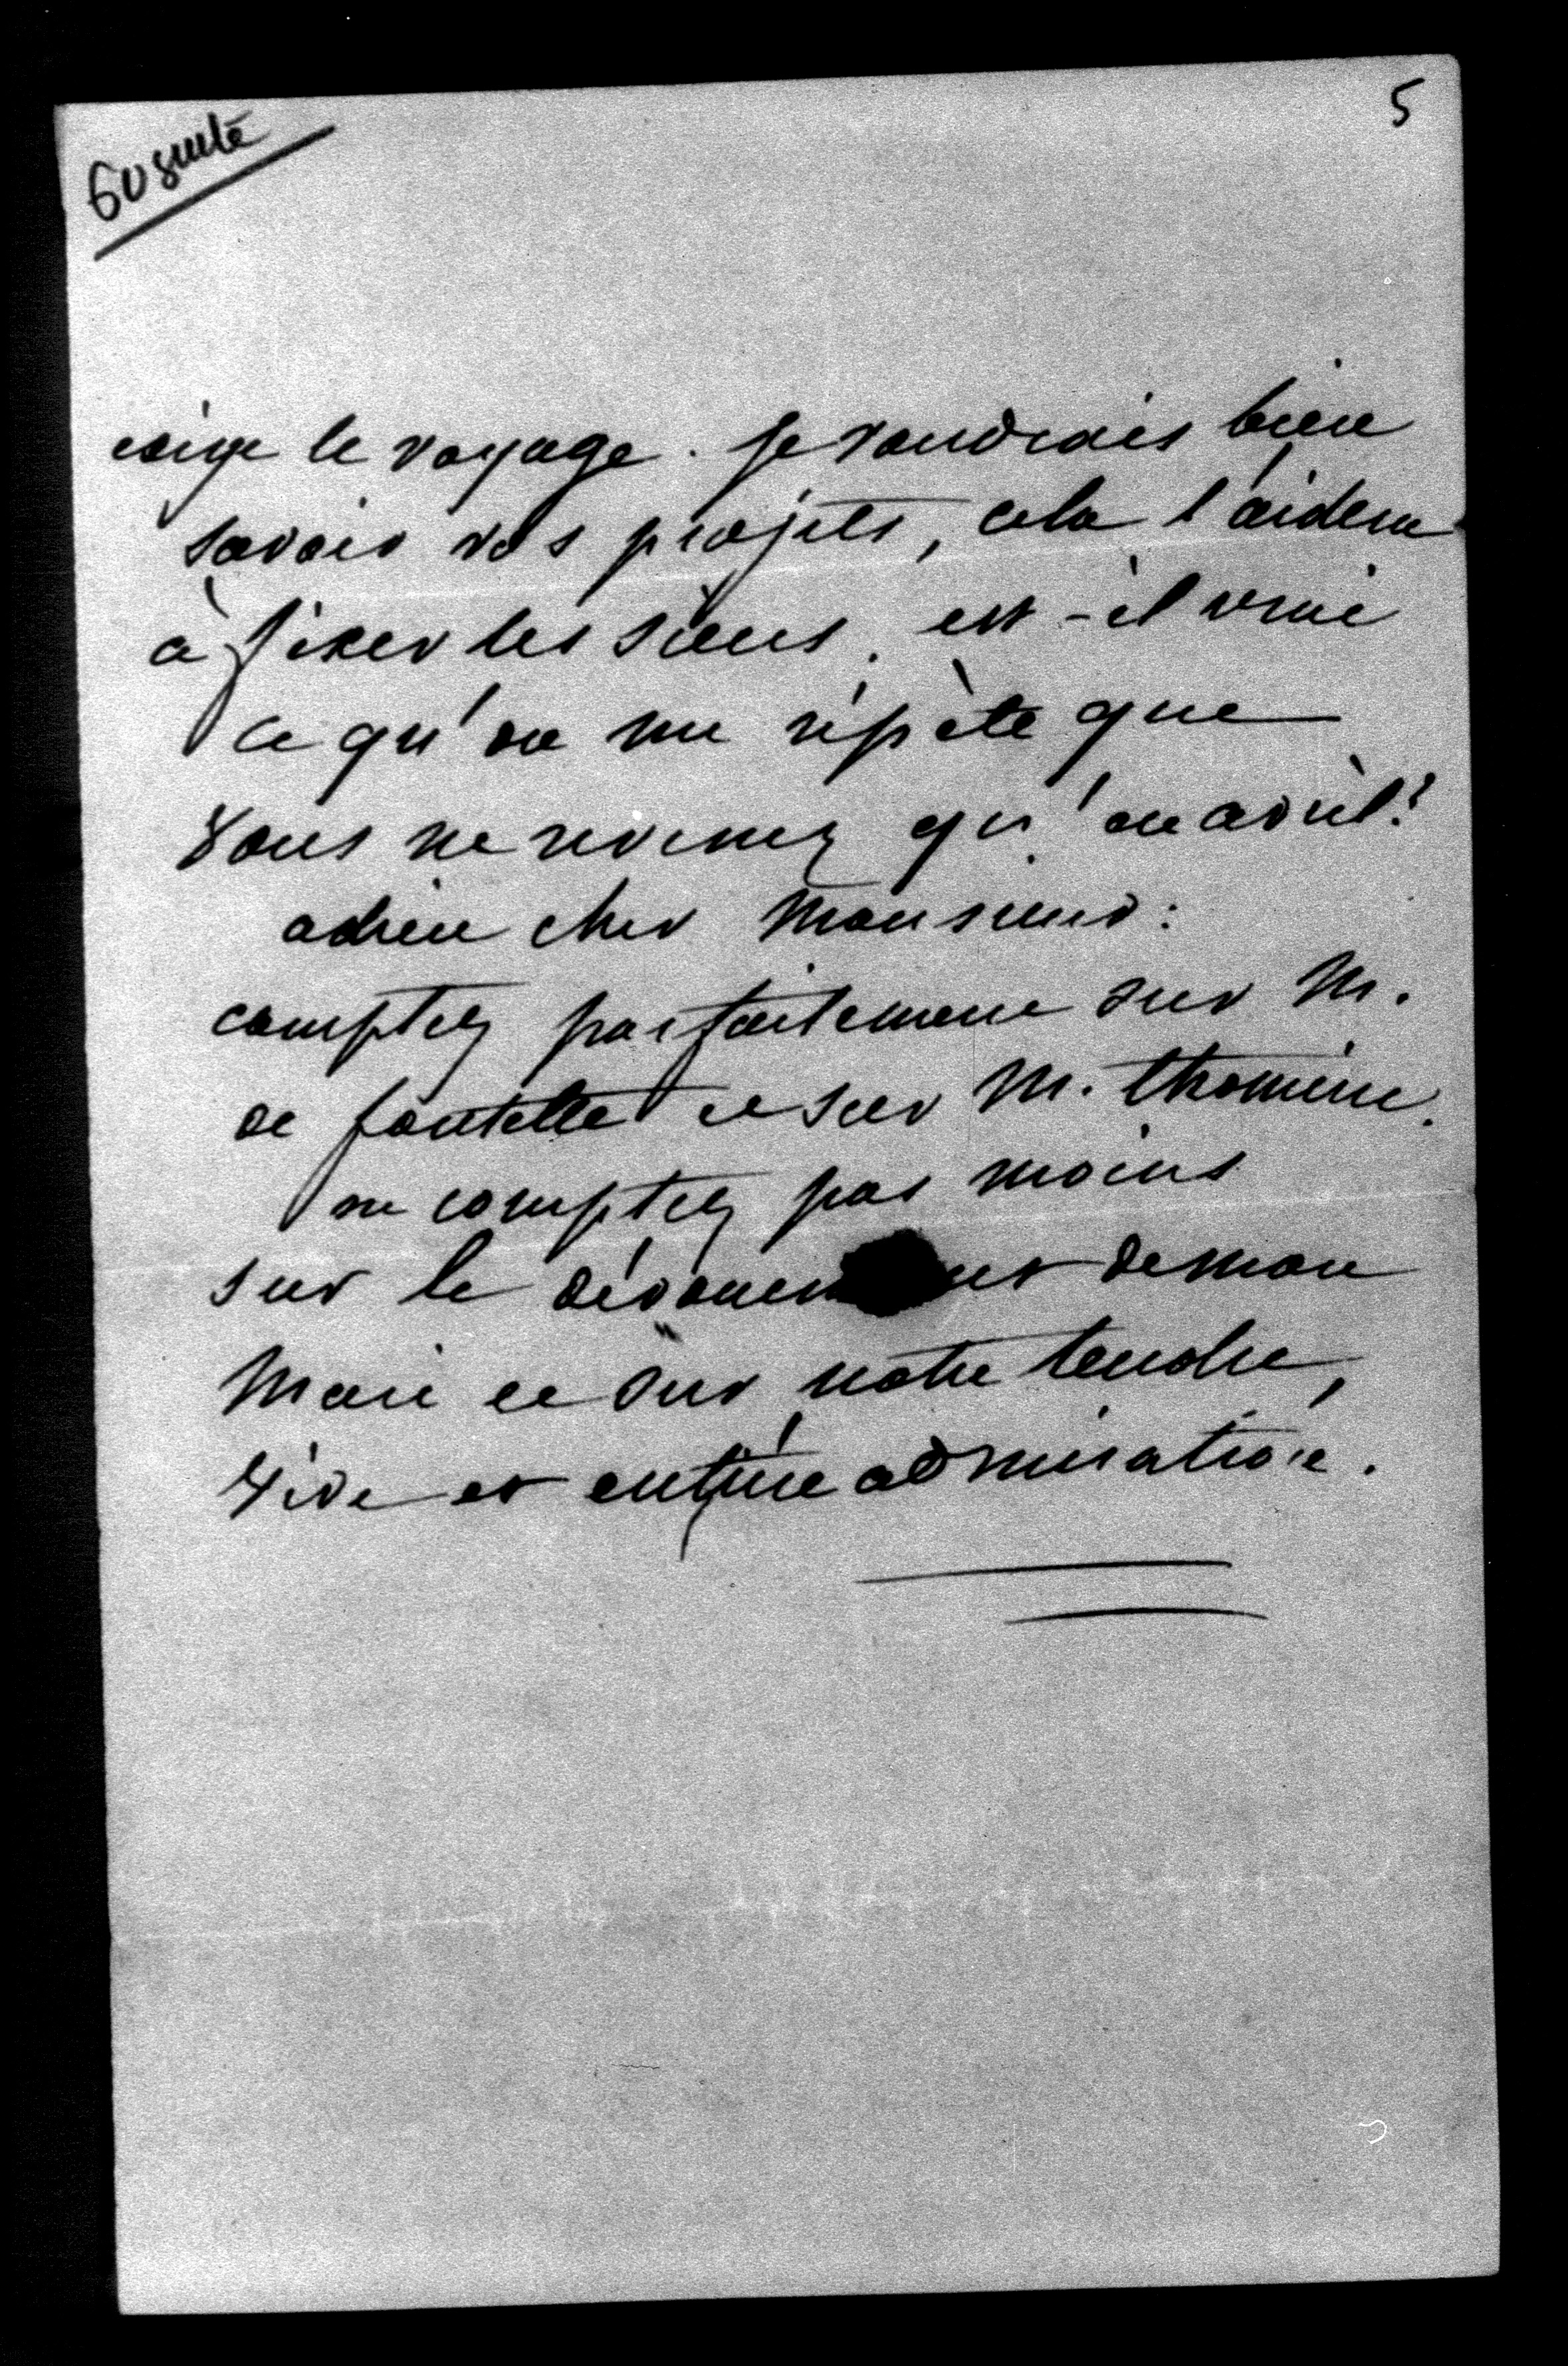 60 suite
5
exige le voyage. je voudrais bien
savoir vos projets, cela l'aidera
à fixer les siens. est-il vrai
ce qu'on me répète que
vous ne revenez qu'en avril?
adieu cher Monsieur:
comptez parfaitement sur M.
de fontette et sur M. thomine.
ne comptez pas moins
sur le dévouement de mon
Mari et sur notre tendre,
vive et entière admiration.